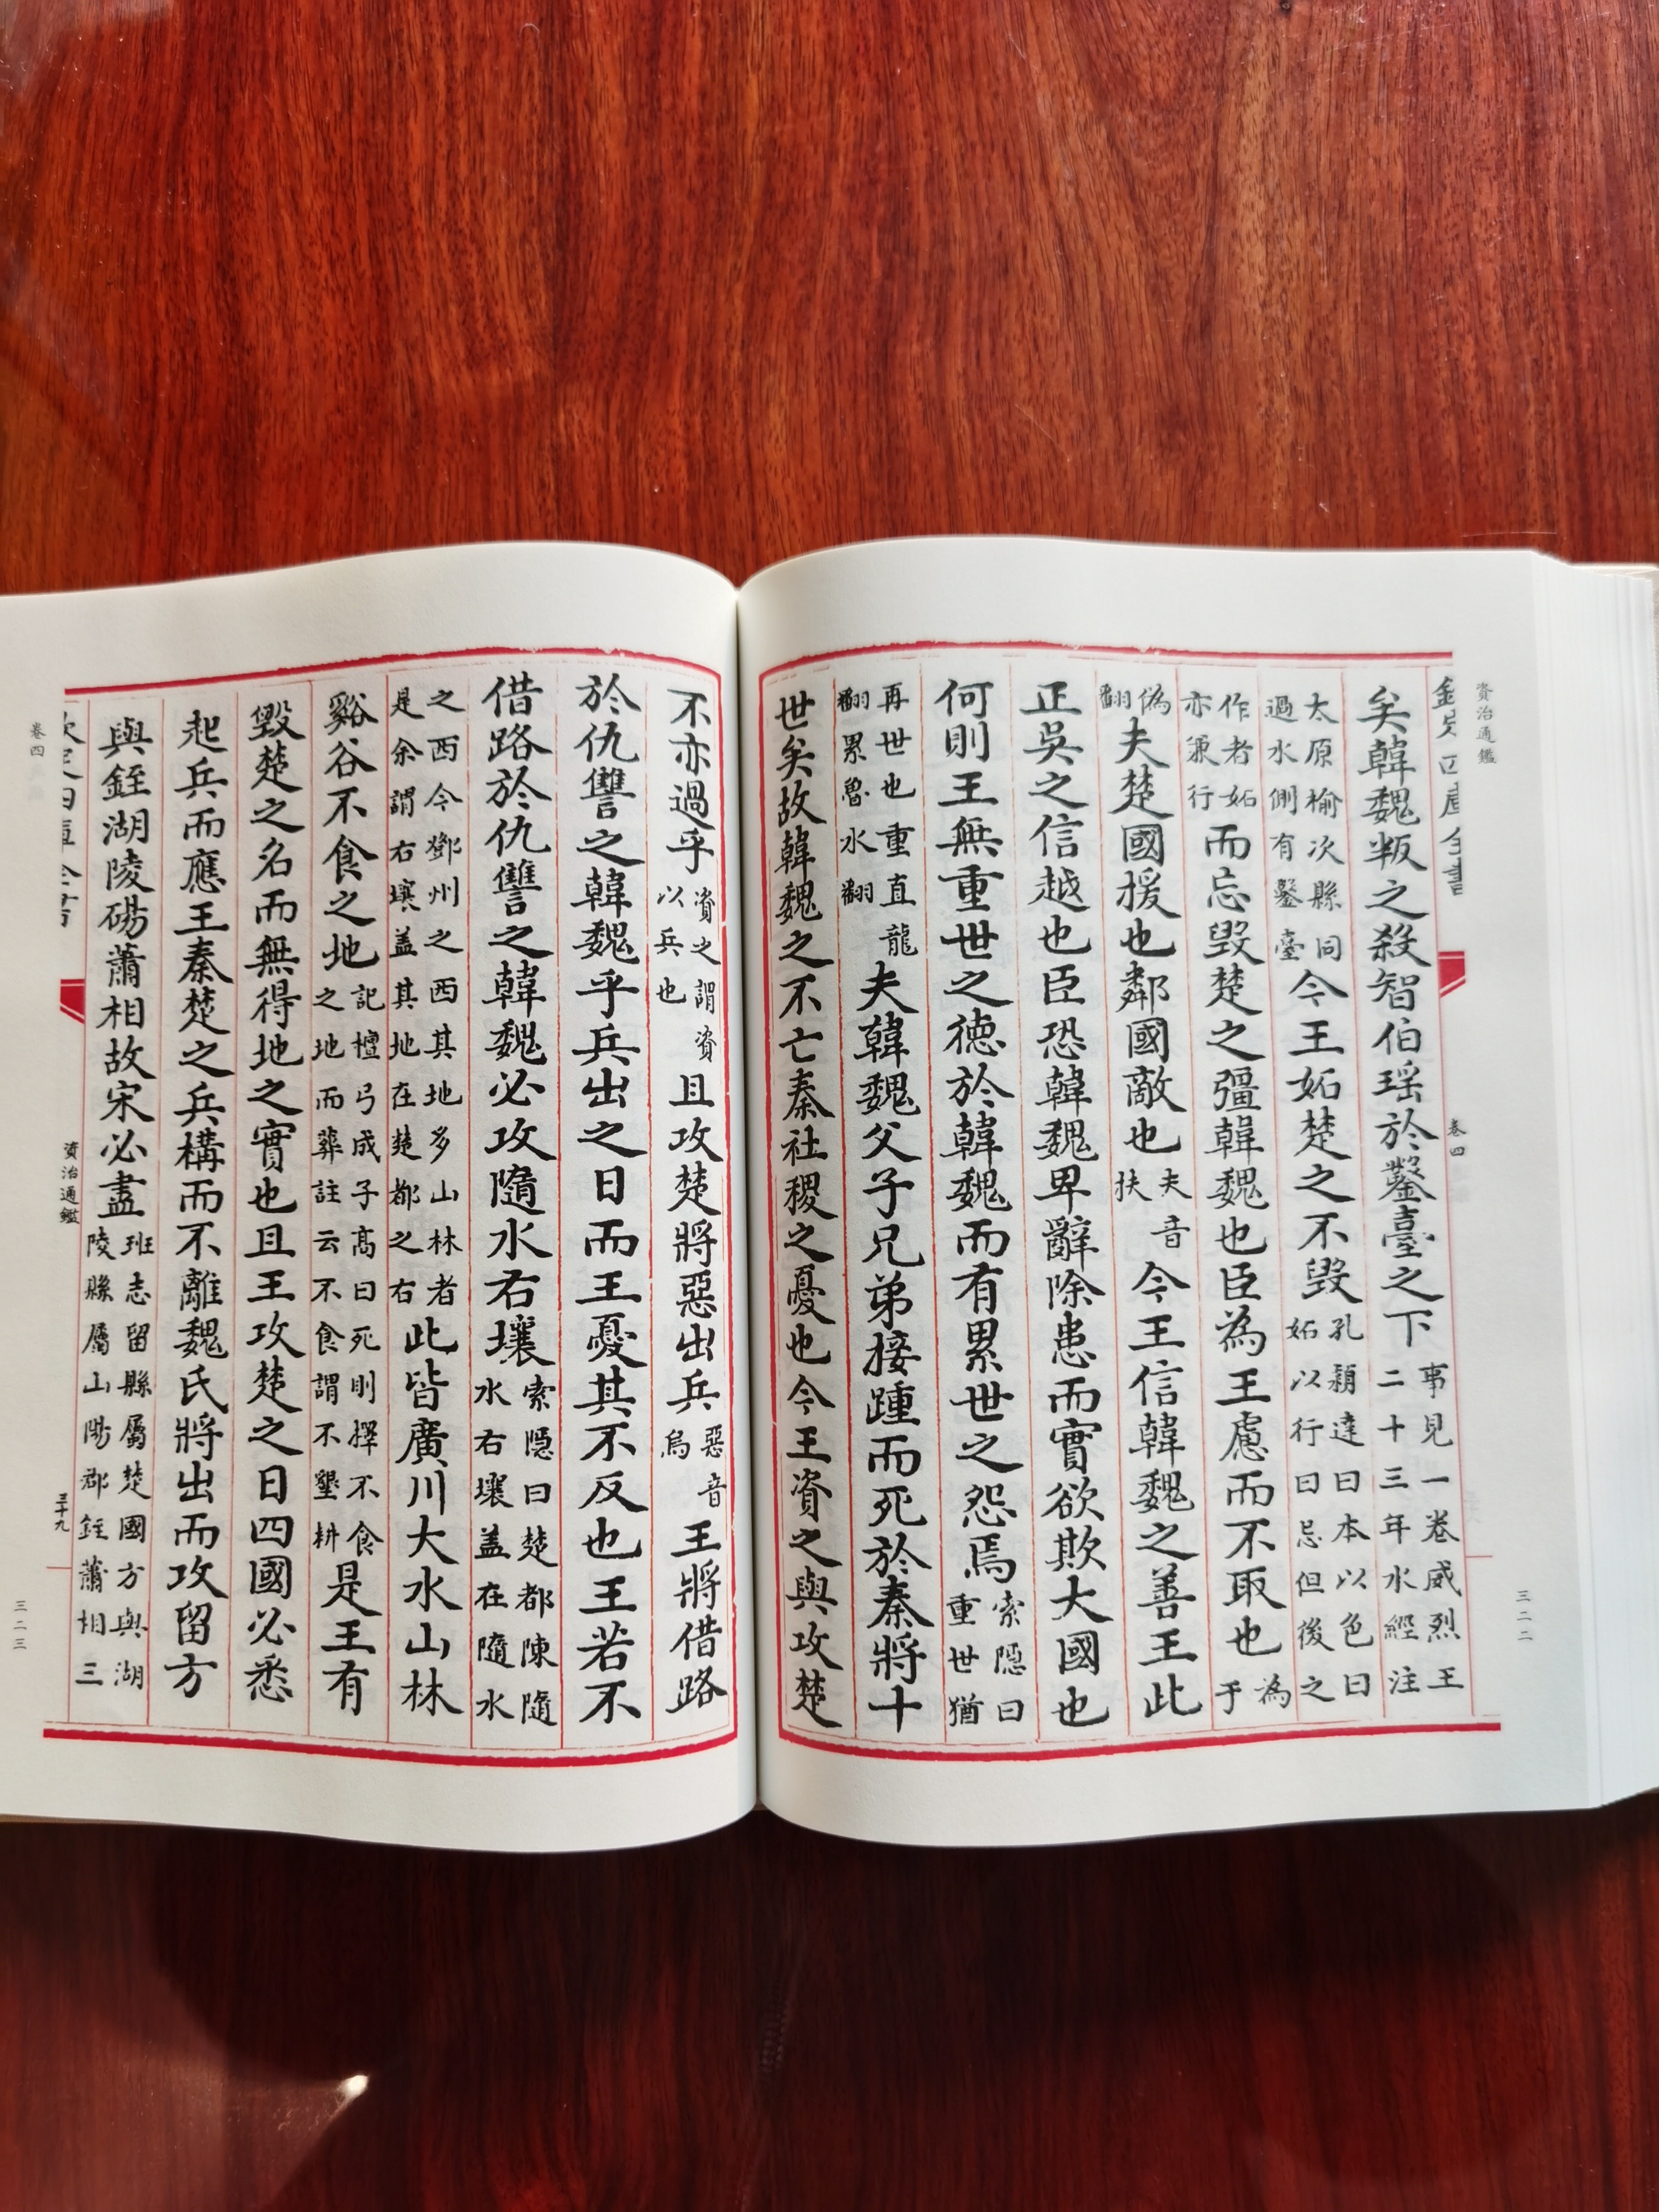 資治通鑑
欽定四庫全書
卷四
三二二
矣韓魏叛之殺智伯瑶於鑿臺之下事見一卷威烈王二十三年水經注
太原榆次縣同過水側有鑿臺今王妬楚之不毁孔穎達曰本以色曰妬以行曰忌但後之
作者妬亦兼行而忘毁楚之彊韓魏也臣為王慮而不取也為于
偽翻夫楚國援也鄰國敵也夫音扶今王信韓魏之善王此
正吳之信越也臣恐韓魏卑辭除患而實欲欺大國也
何則王無重世之德於韓魏而有累世之怨焉索隠曰重世猶
再世也重直龍翻累魯水翻夫韓魏父子兄弟接踵而死於秦將十
世矣故韓魏之不亡秦社稷之憂也今王資之與攻楚
不亦過乎資之謂資以兵也且攻楚將惡出兵惡音烏王將借路
於仇讐之韓魏乎兵出之日而王憂其不反也王若不
借路於仇讐之韓魏必攻隨水右壤索隠曰楚都陳隨水右壤盖在隨水
之西今鄧州之西其地多山林者是余謂右壤盖其地在楚都之右此皆廣川大水山林
谿谷不食之地記檀弓成子高曰死則擇不食之地而葬註云不食謂不墾耕是王有
毁楚之名而無得地之實也且王攻楚之日四國必悉
起兵而應王秦楚之兵構而不離魏氏將出而攻留方
與銍湖陵碭蕭相故宋必盡班志留縣屬楚國方與湖陵縣屬山陽郡銍蕭相三
欽定四庫全書
卷四
資治通鑑
三十九
三二三